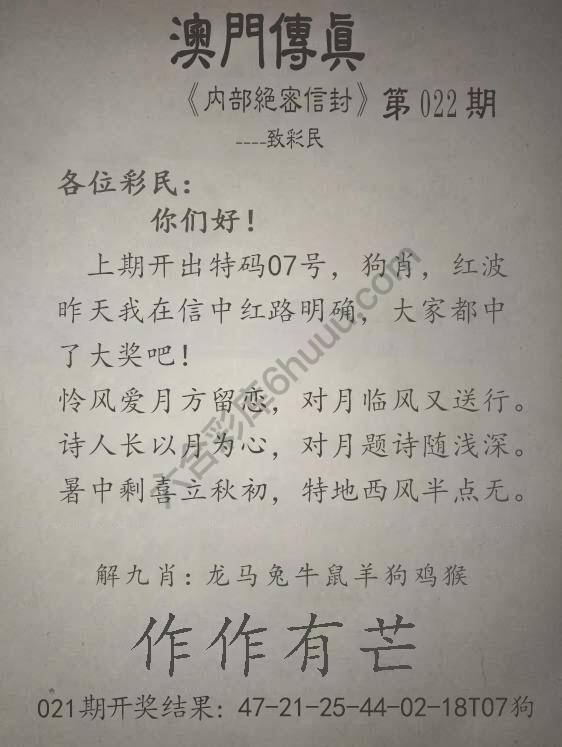 澳門傳真
《内部絕密信封》第022期
----致彩民
各位彩民：
你们好！
上期开出特码07号，狗肖，红波
昨天我在信中红路明确，大家都中
了大奖吧！
怜风爱月方留恋，对月临风又送行。
诗人长以月为心，对月题诗随浅深。
暑中剩喜立秋初，特地西风半点无。
六合彩库6huuu.com
解九肖：龙马兔牛鼠羊狗鸡猴
作作有芒
021期开奖结果：47-21-25-44-02-18T07狗